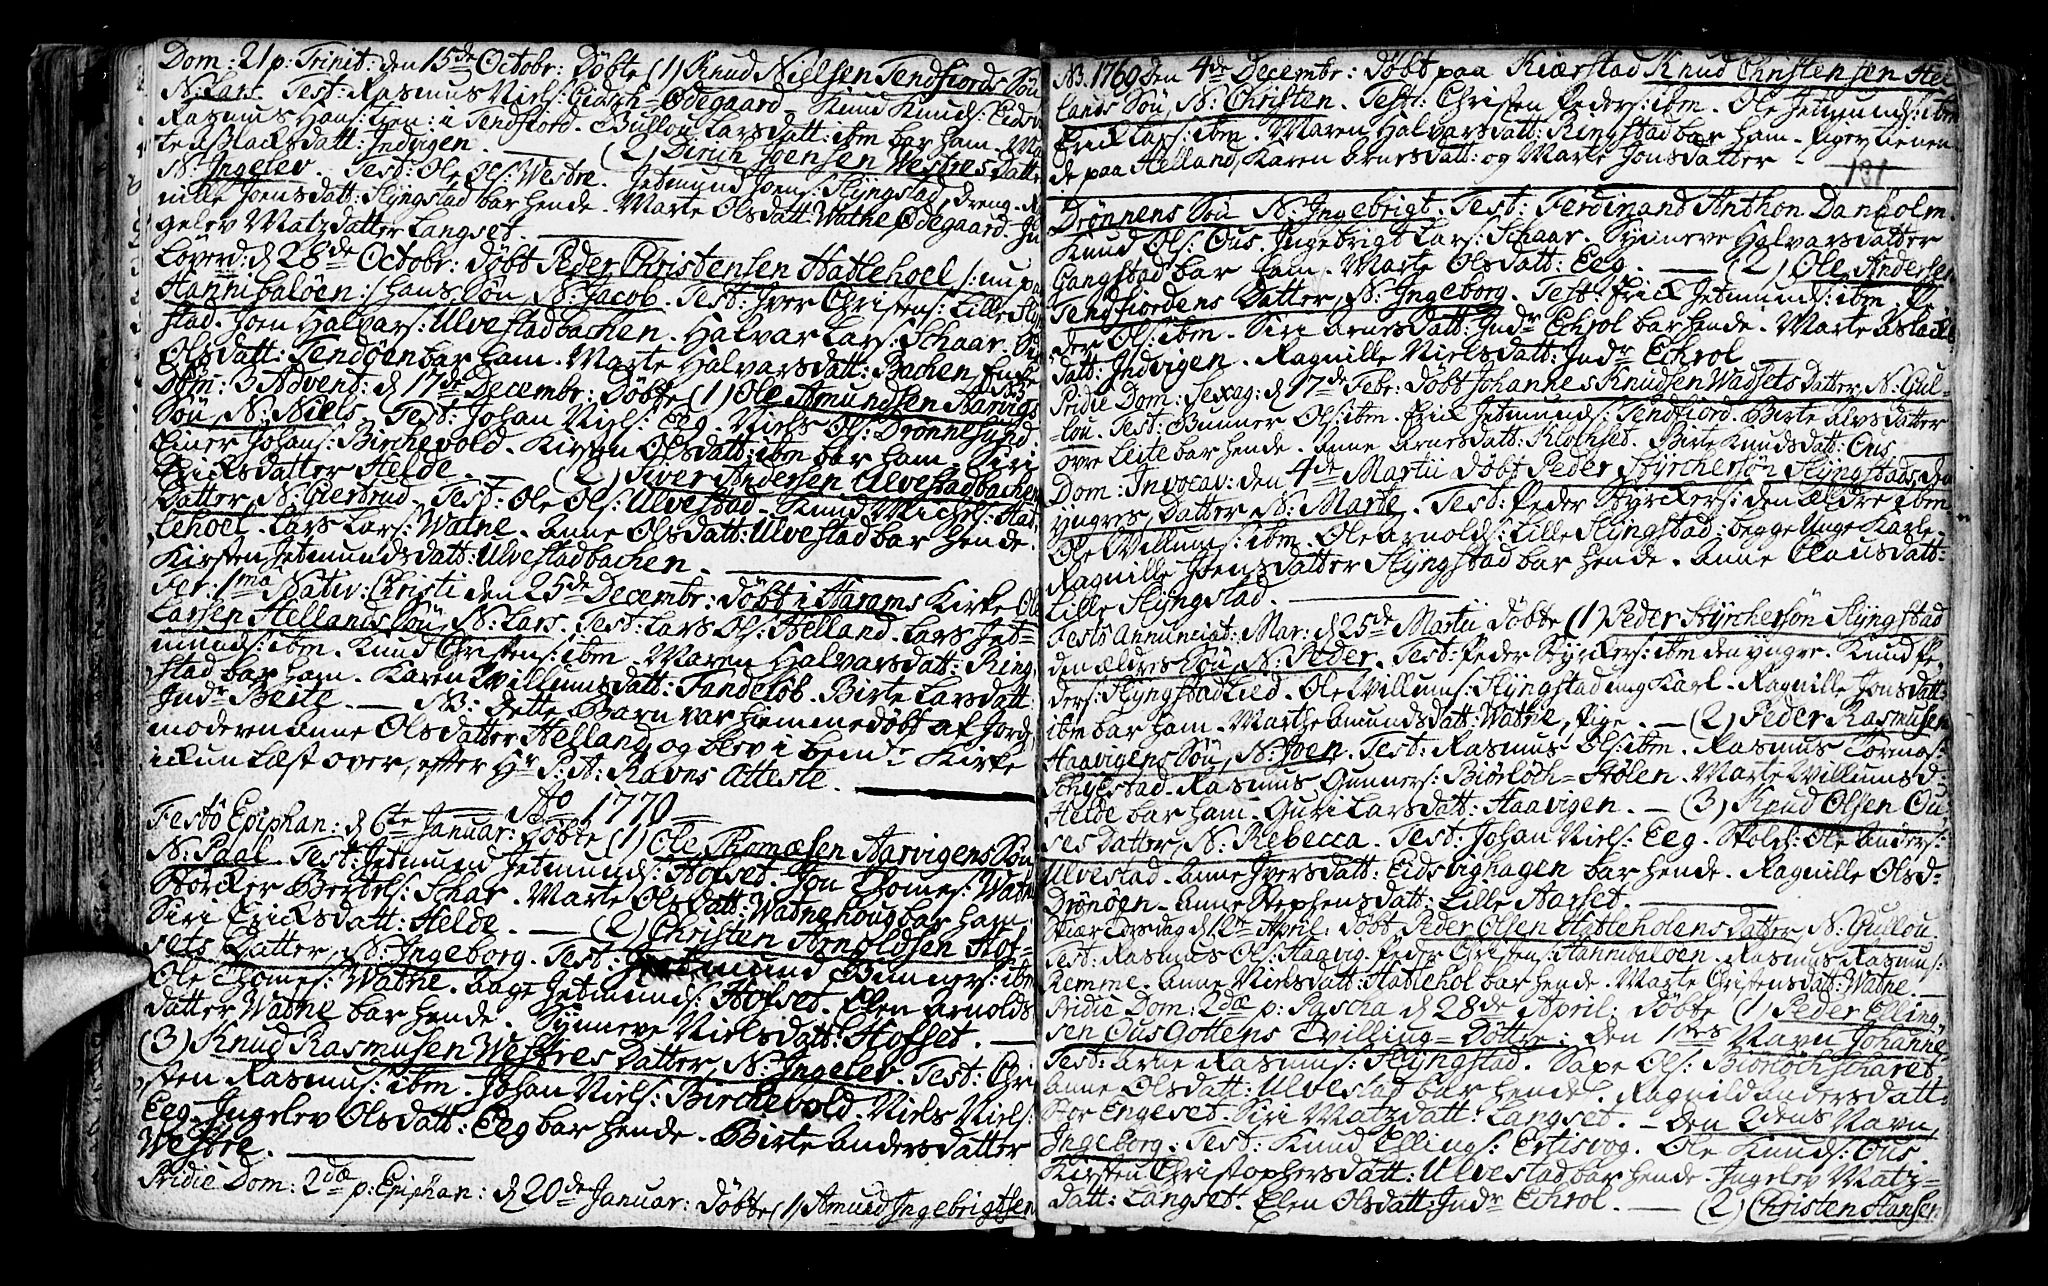 Dom: 21 p: Trinit: den 15de Octobr: Døbte (1) Knud Nielsen Tendfiords Søn
N: Lars. Test: Rasmus Niels: Eidsvigh=Ødegaard. Knud Knuds: Eidsvi
Rasmus Hans: tien: i Tendfiord. Bullou Larsdatt: ibm bar ham. M
te Aslacksdatt: Indvigen. — (2) Dirich Joensen Westres Datter
N: Ingelev. Test: Ole Ols: Westre. Jetmund Joens: Slyngstad, dreng.
nille Joensdatt: Slyngstad bar hende. Marte Olsdatt: Watne Ødegaard. In
gelev Matzdatter Langset. —
Løverd: d 28de Octobr: døbt Peder Christensen Hatlehoel /: nu paa
Hannibaløen :/ hans Søn, N: Jacob. Test: Iver Christens: Lille Slyng
stad. Joen Halvars: Ulvestadbachen. Halvar Lars: Schaar.
Olsdatt: Tendøen bar ham. Marte Halvarsdatt: Bachen Enke
Dom: 3 Advent: d 17de Decembr: Døbte (1) Ole Amundsen Aarvigs
Søn, N: Niels. Test: Johan Niels: Eeg. Niels Ols: Drønnesund.
Einer Johans: Birchevold. Kirsten Olsdatt: ibm bar ham. Siri
Ericksdatter Helde. — (2) Siver Andersen Ulvestadbachens
Datter, N: Giertrud. Test: Ole Ols: Ulvestad. Knud Michels: Hat
lehoel. Lars Lars: Watne. Anne Olsdatt: Ulvestad bar hende.
Kirsten Jetmundsdatt: Ulvestadbachen. —
Fer: 1ma Nativ: Christi den 25de Decembr: døbt i Harams Kirke Ole
Larsen Hellands Søn, N: Lars. Test: Lars Ols: Helland. Lars Jet-
munds: ibm. Knud Christens: ibm. Maren Halvarsdatt: Ring
stad bar ham. Karen Willumsdatt: Tandeløb. Birte Larsdatt:
Indr Beite. — NB: dette Barn var hiemmedøbt af Jord
moderen Anne Olsdatter Helland, og blev i bemte Kirke
ickun læst over, efter Hr P: A: Ravns Atteste. —
Ao 1770.
Festo Epiphan: d 6te Januar: Døbte (1) Ole Thomæsen Aarvigens Søn
N: Paal. Test: Jetmund Jetmunds: Hofset. Jon Thomes: Watne
Størcker Bertels: Skar. Marte Olsdatt: Watnehoug bar ham.
Siri Ericksdatt: Helde. — (2) Christen Arnoldsen Hof=
sets Datter, N: Ingeborg. Test: Jetmund Gunners: ibm
Ole Thomes: Watne. Aage Jetmunds: Hofset. Olen Arnolds
datter Watne bar hende. Synneve Nielsdatt: Hofset. —
(3) Knud Rasmusen Westres Datter, N: Ingelev. Test: Chri
sten Rasmus: ibm. Johan Niels: Birchevold. Niels Niels:
Eeg. Ingelev Olsdatt: Eeg bar hende. Birte Andersdatter
Westre. —
Pridie Dom: 2dæ p: Epiphan: d 20de Januar: døbte (1) Amund Ingebrigtsen
NB. 1769 den 4de Decembr: døbt paa Kiærstad Knud Christensen Hel
lands Søn, N: Christen. Test: Christen Peders: ibm. Ole Jetmunds: ibm
Erick Lars: ibm. Maren Halvarsdatt: Ringstad bar ham. Piger tienen
de paa Helland, Karen Arnesdatt: og Marte Jonsdatter
131
Drønnens Søn N: Ingebrigt. Test: Ferdinand Anthon Danholm.
Knud Ols: Ous. Ingebrigt Lars: Schaar. Synneve Halvarsdatter
Gangstad bar ham. Marte Olsdatt: Eeg. — (2) Ole Andersen
Tendfiordens Datter, N: Ingeborg. Test: Erick Jetmunds: ibm.
der Ols: ibm. Siri Arnesdatt: Indr Echrol bar hende. Marte Aslacks
datt: Indvigen. Ragnille Nielsdatt: Indr Echrol
Pridie Dom: Sexag: d 17de Febr: døbt Johannes Knudsen Wadsets Datter, N: Gul-
lou. Test: Gunner Ols: ibm. Erick Jetmunds: Tendfiord. Birte Alvsdatter
Ovre Leite bar hende. Anne Arnesdatt: Klochset. Birte Knudsdatt: Ous
Dom: Invocav: den 4de Martii døbt Peder Styrchersøn Slyngstads, den
yngres, Datter N: Marte. Test: Peder Styrckers: den ældre ibm.
Ole Willums: ibm. Ole Arnolds: Lille Slyngstad, begge Unge Karle.
Ragnille Joensdatter Slyngstad bar hende. Anne Clausdatt:
Lille Slyngstad. —
Festo Annunciat: Mar: d 25de Martii Døbte (1) Peder Styrchersøn Slyngstad
den ældres Søn, N: Peder. Test: Peder Styrckers: ibm den yngre. Knud Pe-
ders: Slyngstadlied. Ole Willums: Slyngstad ung Karl. Ragnille Jonsdatt:
ibm bar ham. Marthe Amundsdatt: Watne, Pige. — (2) Peder Rasmusen
Haavigens Søn, N: Iven. Test: Rasmus Ols: ibm. Rasmus Tormos:
Schjelstad. Rasmus Gunners: Biørløch=Hølen. Marte Willumsd=
Helde bar ham. Guri Larsdatt: Haavigen. — (3) Knud Olsen Ou-
ses Datter, N: Rebecca. Test: Johan Niels: Eeg. Skolds: Ole Anders:
Ulvestad. Anne Iversdatt: Eidsvighagen bar hende. Ragnille Olsd=
Drønøen. Anne Stephensdatt: Lille Aarset. —
Skiær Torsdag d 12te April: døbt Peder Olsen Hatleholens Datter, N: Gullou.
Test: Rasmus Ols: Haavig. Peder Christens: Hannibaløen. Rasmus Rasmus:
Remme. Anne Nielsdatt: Hatlehol bar hende. Marte Christensdatt: Watne. —
Pridie Dom: 2dæ p: Pascha d 28de April: Døbte (1) Peder Elling
sen Ous Gottens Tvilling=Døttre: den 1stes Navn Johanne
Test: Arne Rasmus: Slyngstad. Sape Ols: Biørløchscharet
Anne Olsdatt: Ulvestad bar hende. Ragnild Andersdatt:
Stor Engeset. Siri Matzdatt: Langset. — Den 2dens Navn
Ingeborg: Test: Knud Ellings: Ertisvog. Ole Knuds: Ous.
Kirsten Christophersdatt: Ulvestad bar hende. Ingelev Matz=
datt: Langset. Elen Olsdatt: Indr Echrol. — (2) Christen Hansen